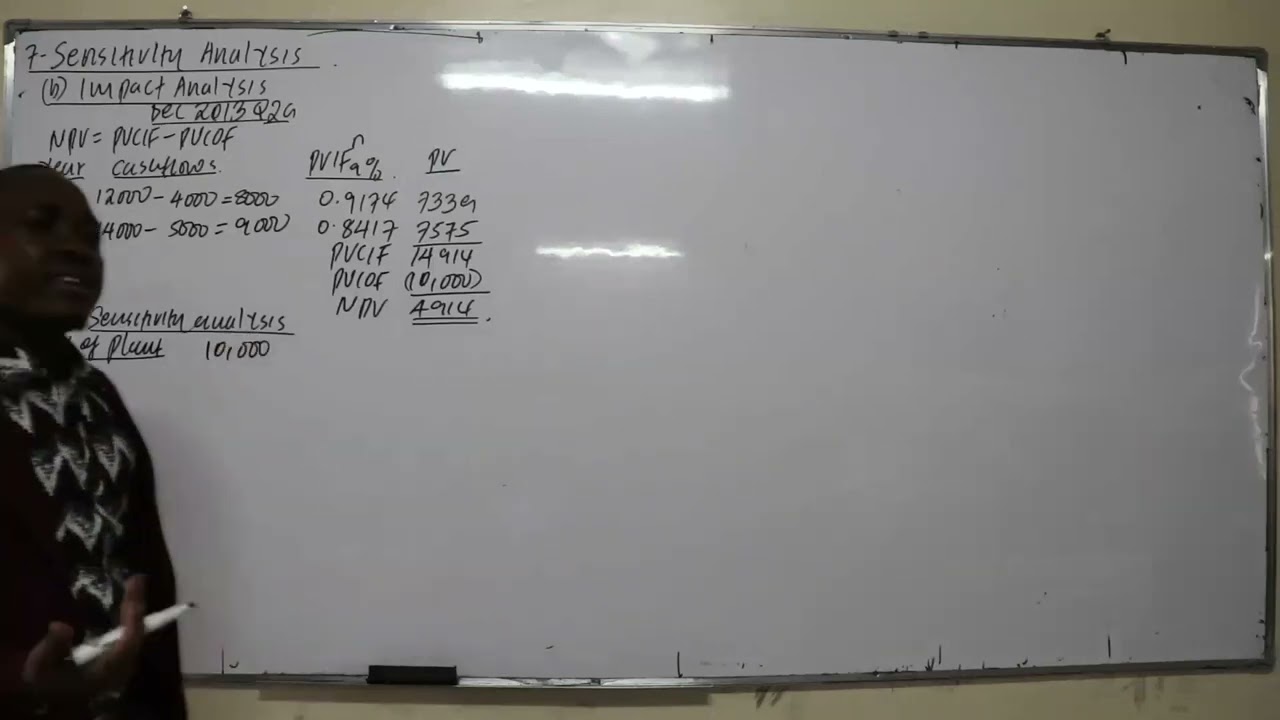 7- Sensitivity Analysis
(b) Impact Analysis
Dec 2013 Q2a
NPV = PVCIF - PVCOF
Year cashflows. PVIF n 9%. PV
12000 - 4000 = 8000 0.9174 7339
14000 - 5000 = 9000 0.8417 7575
PVCIF 14914
PVCOF (10,000)
NPV 4914
Sensitivity analysis
of Plant 10,000